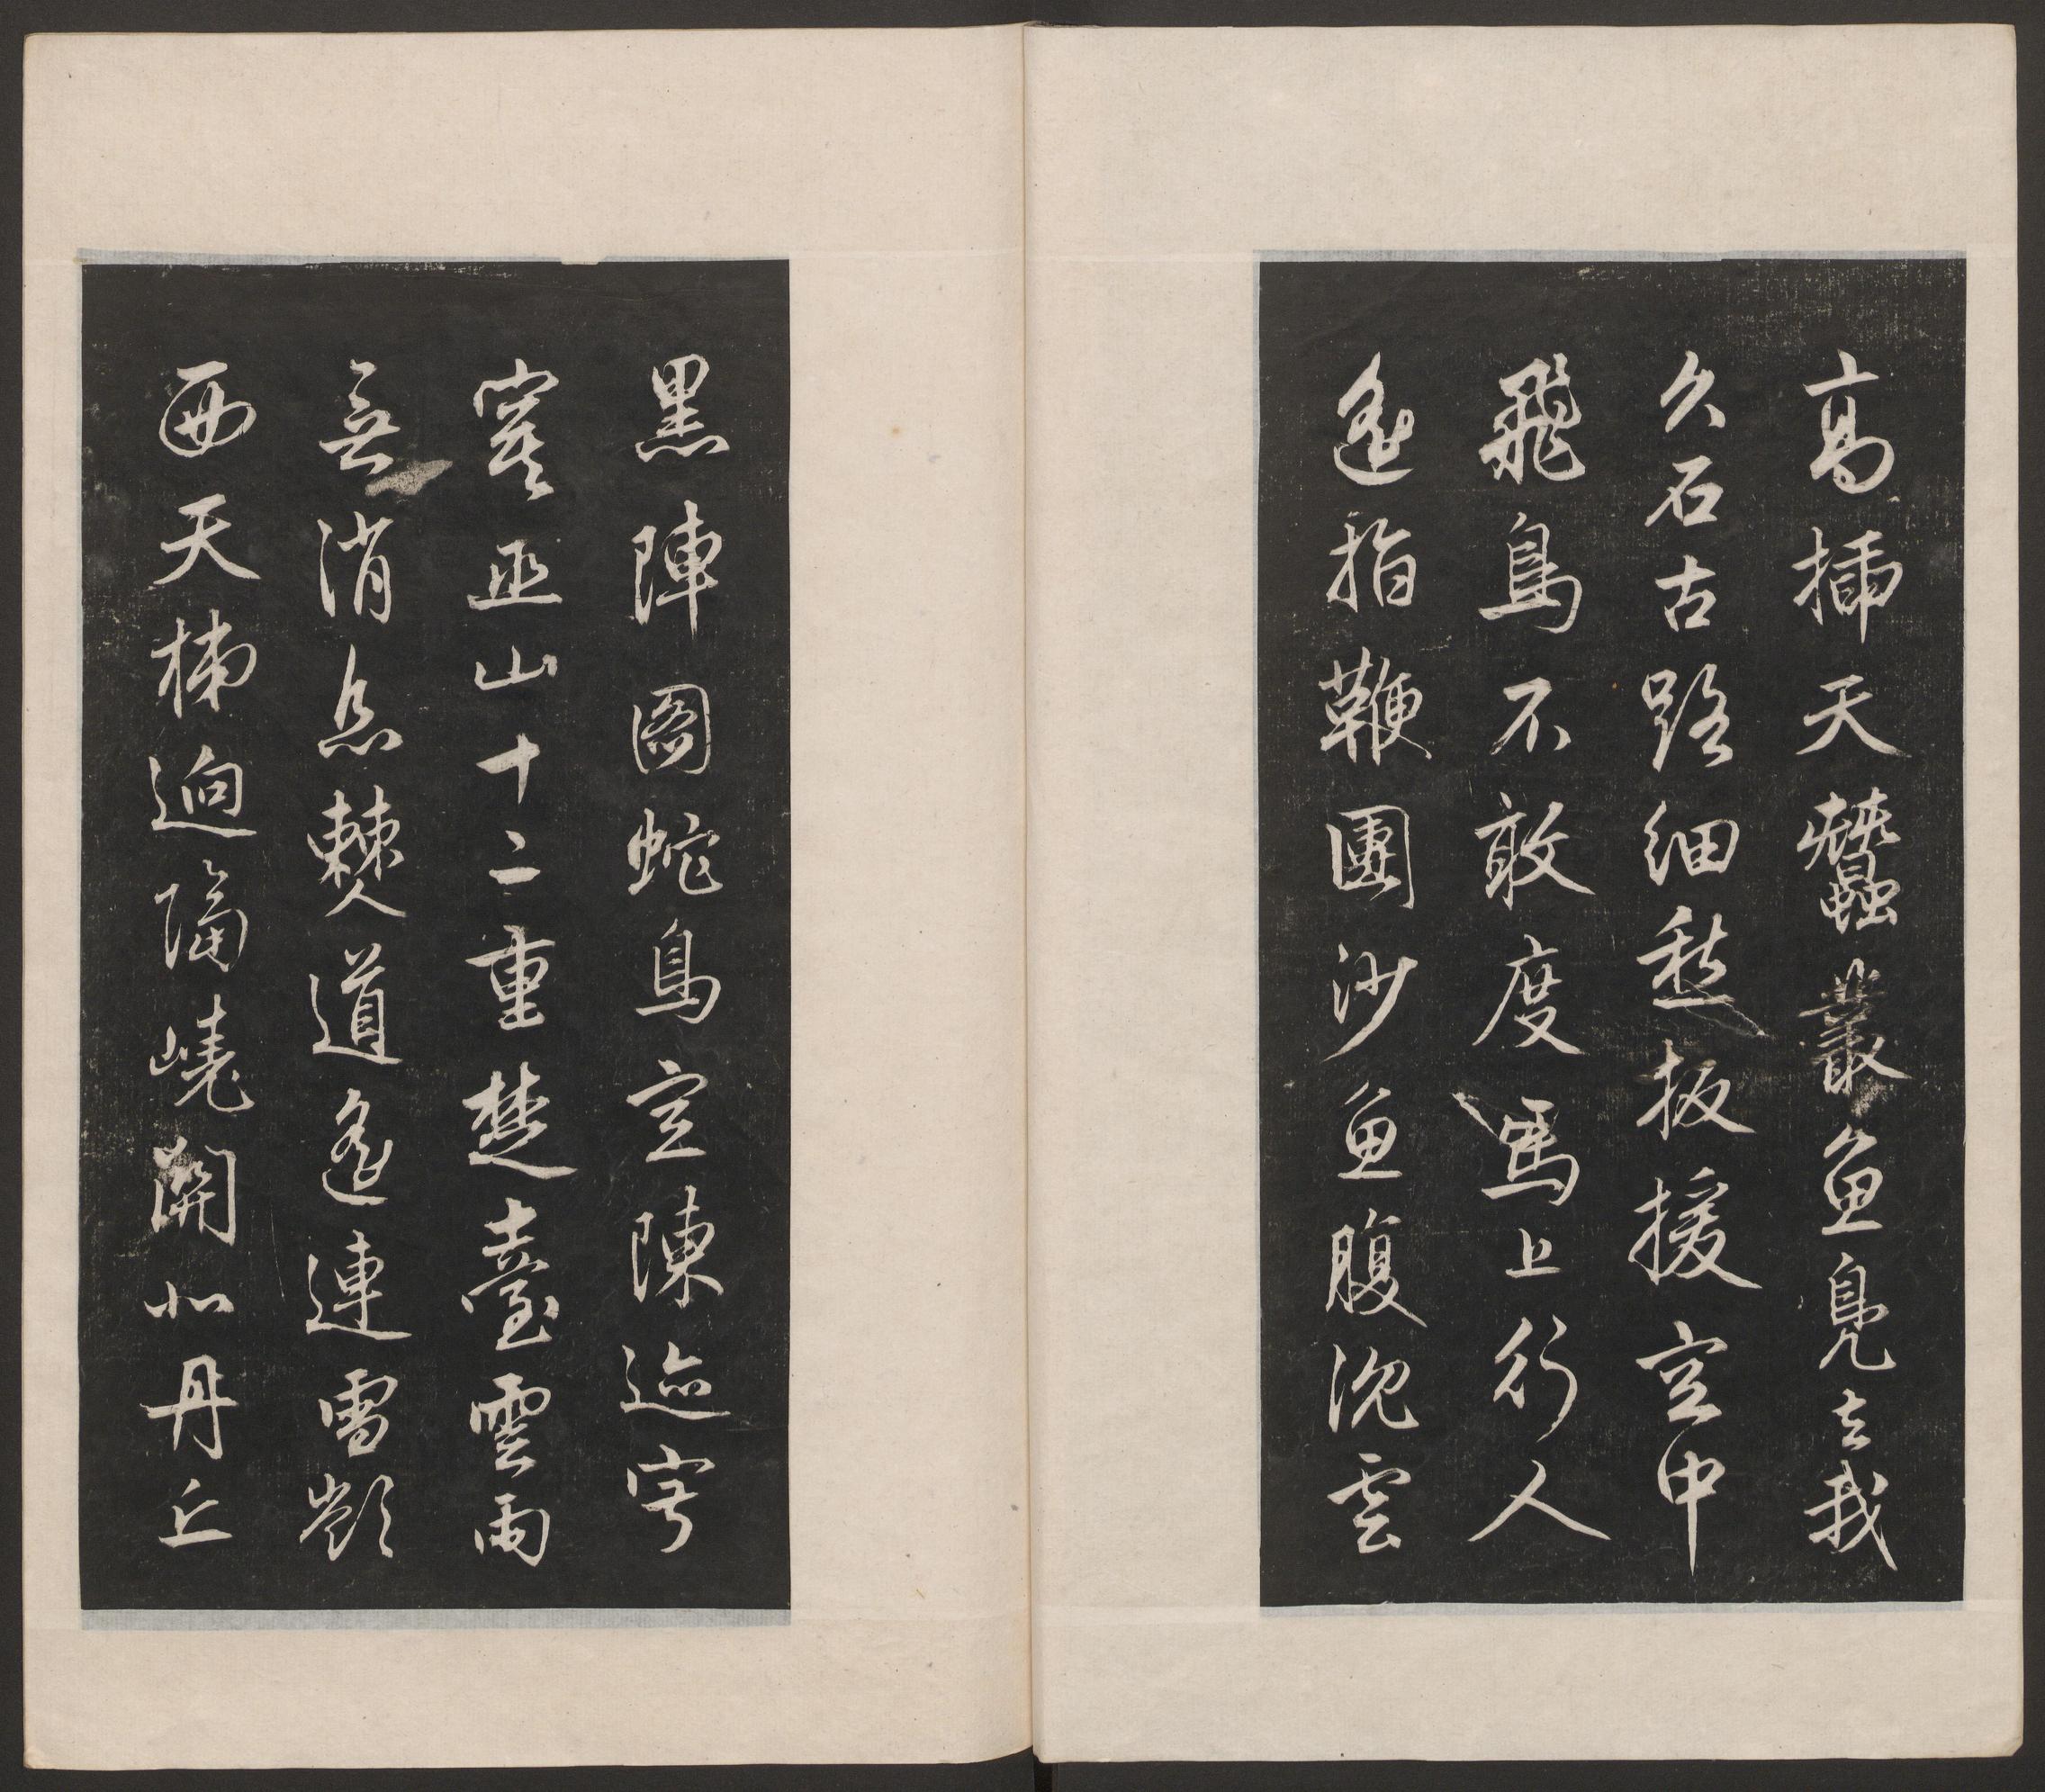 高插天蠶叢魚鳧去我
久石古路細愁扳援空中
飛鳥不敢度馬上行人
遙指鞭團沙魚腹沈雲
黑陣圖蛇鳥空陳迹窅
窱巫山十二重楚臺雲雨
無消息僰道遙連雪嶺
西天梯迥隔嶢關北丹丘